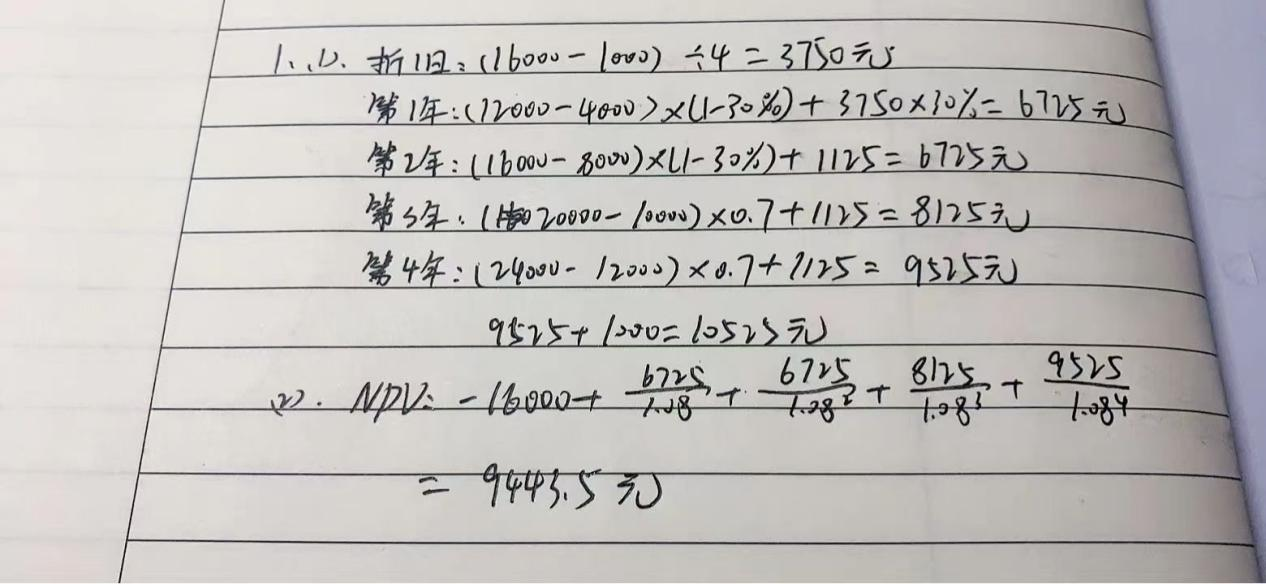 1、(1). 折旧:(16000-1000)÷4=3750元
第1年:(12000-4000)×(1-30%)+3750×30%=6725元
第2年:(16000-8000)×(1-30%)+1125=6725元
第3年:(20000-10000)×0.7+1125=8125元
第4年:(24000-12000)×0.7+1125=9525元
9525+1000=10525元
(2). NPV:-16000+6725/1.08+6725/1.08²+8125/1.08³+9525/1.08⁴
=9443.5元